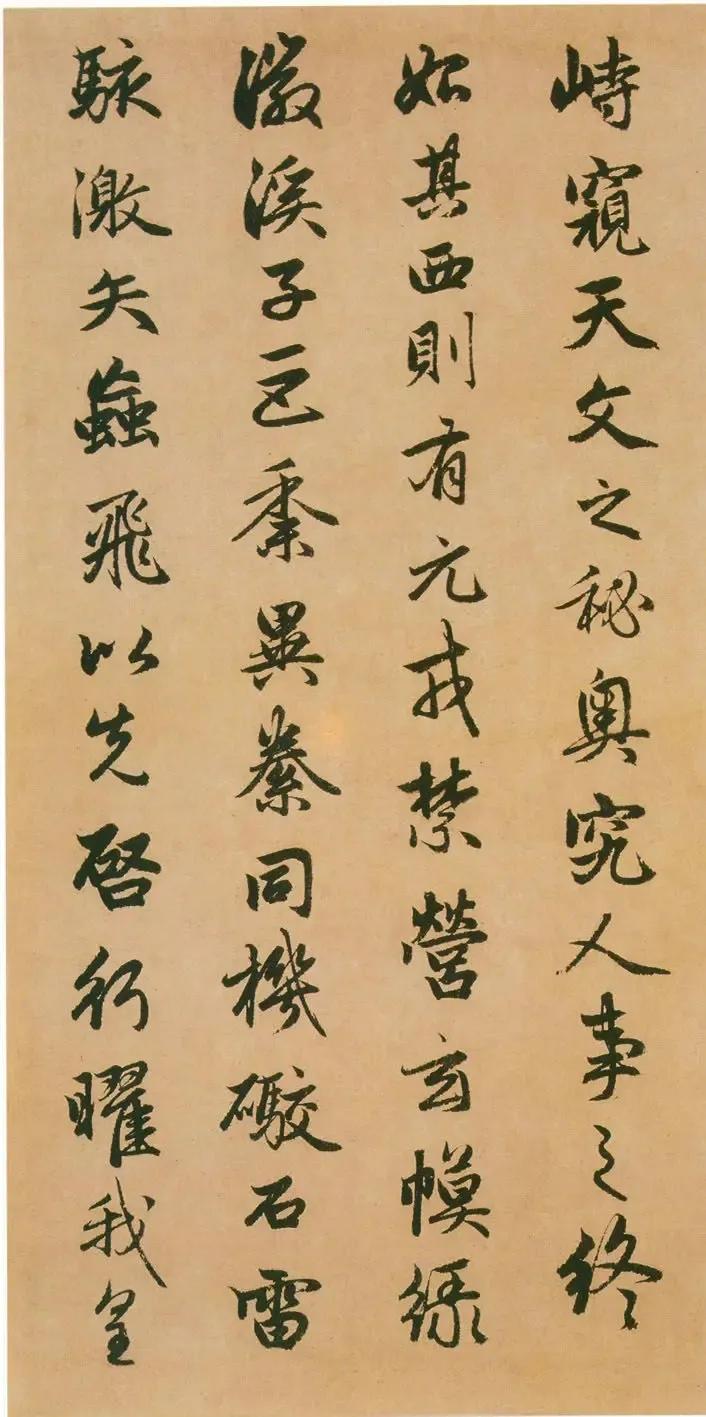 峙窺天文之秘奧究人事之終
始其西則有元戎禁營玄幙綠
徽溪子巨黍異絭同機礮石雷
駭激矢蝱飛以先啓行曜我皇